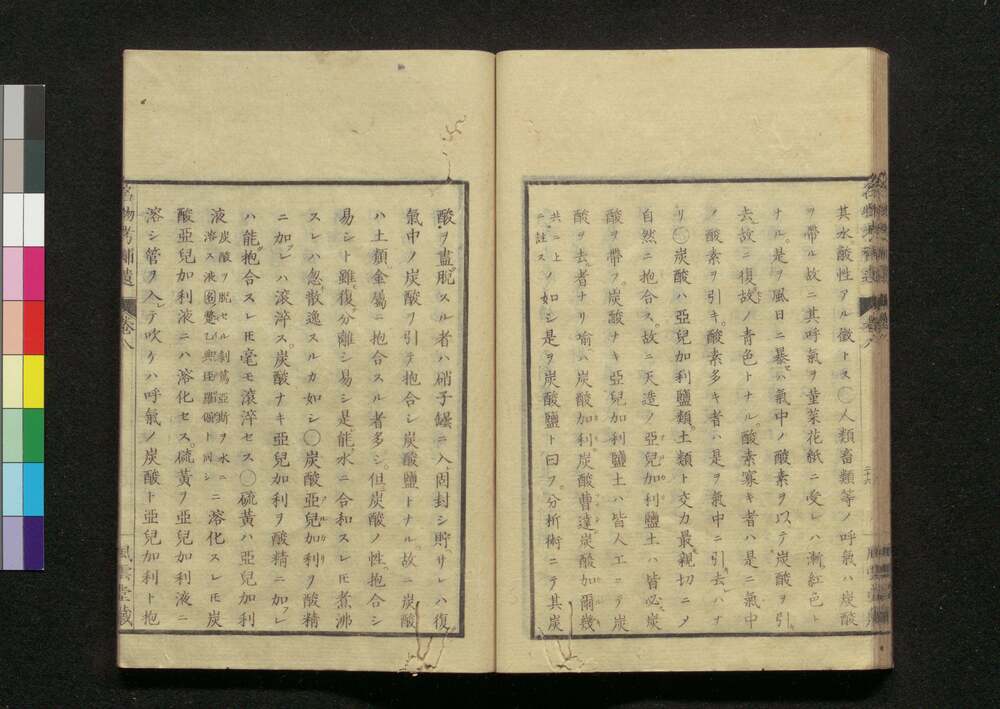 其水酸性アル徴トス○人類畜類等ノ呼氣ハ炭酸
ヲ帶ル故ニ其呼氣ヲ菫菜花紙ニ受レハ漸紅色ト
ナル是ヲ風日ニ暴ハ氣中ノ酸素ヲ以テ炭酸ヲ引
去故ニ復故ノ青色トナル酸素寡キ者ハ是ニ氣中
ノ酸素ヲ引キ酸素多キ者ハ是ヲ氣中ニ引去ハナ
リ○炭酸ハ亞兒加利鹽類土類ト交力最親切ニメ
自然ニ抱合ス故ニ天造ノ亞兒加利鹽土ハ皆必炭
酸ヲ帶フ炭酸ナキ亞兒加利鹽土ハ皆人工ニテ炭
酸ヲ去者ナリ喻ハ炭酸加利炭酸曹達炭酸加爾幾
共ニ上ニ註ス
ノ如シ是ヲ炭酸鹽ト曰フ分析術ニテ其炭
酸ヲ盡脱スル者ハ硝子罎ニ入固封シ貯サレハ復
氣中ノ炭酸ヲ引テ抱合シ炭酸鹽トナル故ニ炭酸
ハ土類金屬ニ抱合スル者多シ但炭酸ノ性抱合シ
易シト雖復分離シ易シ是能水ニ合和スレ𪜈煮沸
スレハ忽散逸スルカ如シ○炭酸亞兒加利ヲ酸精
ニ加レハ滾淬ス炭酸ナキ亞兒加利ヲ酸精ニ加フレ
ハ能抱合スレ𪜈毫モ滾淬セス○硫黃ハ亞兒加利
液
炭酸ヲ脱セル剝篤亞斯ヲ水ニ
溶ス液
ト同シ
ニ溶化スレ𪜈炭
酸亞兒加利液ニハ溶化セス硫黃ヲ亞兒加利液ニ
溶シ管ヲ入レテ吹ケハ呼氣ノ炭酸ト亞兒加利ト抱
名物考補遺
卷八
風雲堂藏